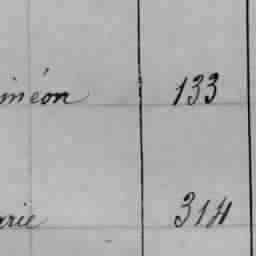 iméon 133
arie 314